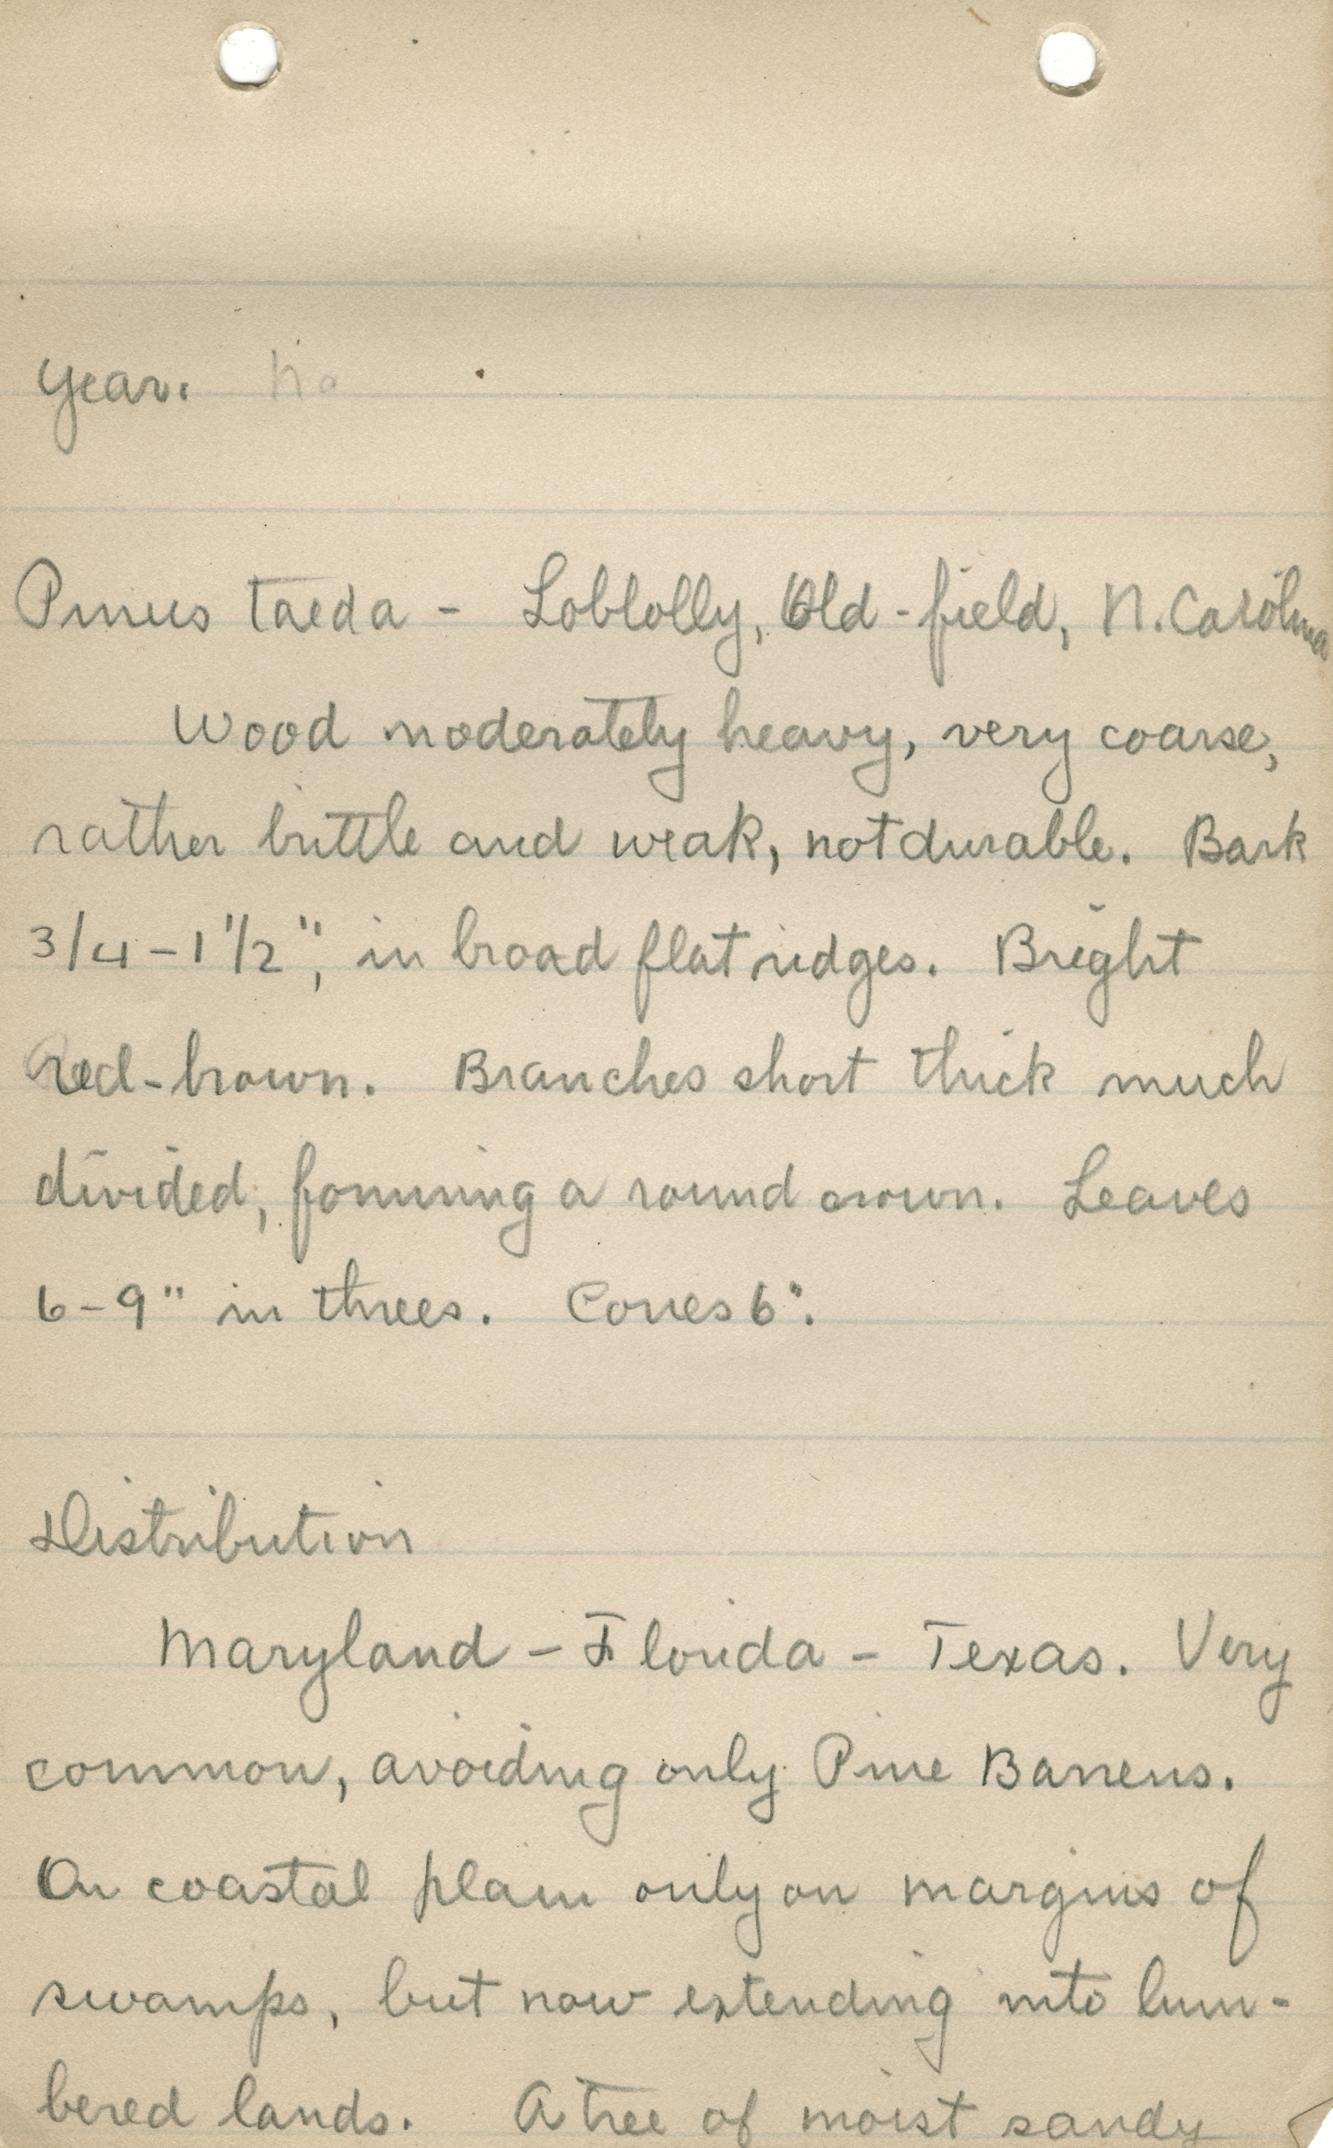 year. No
Pinus taeda - Loblolly, Old-field, N. Carolina
Wood moderately heavy, very coarse,
rather brittle and weak, not durable. Bark
3/4-1 1/2", in broad flat ridges. Bright
Red-brown. Branches short thick much
divided, forming a round crown. Leaves
6-9" in threes. Cones 6".
Distribution
Maryland - Florida - Texas. Very
common, avoiding only Pine Barrens.
On coastal plain only on margins of
swamps, but now extending into lum-
bered lands. A tree of moist sandy